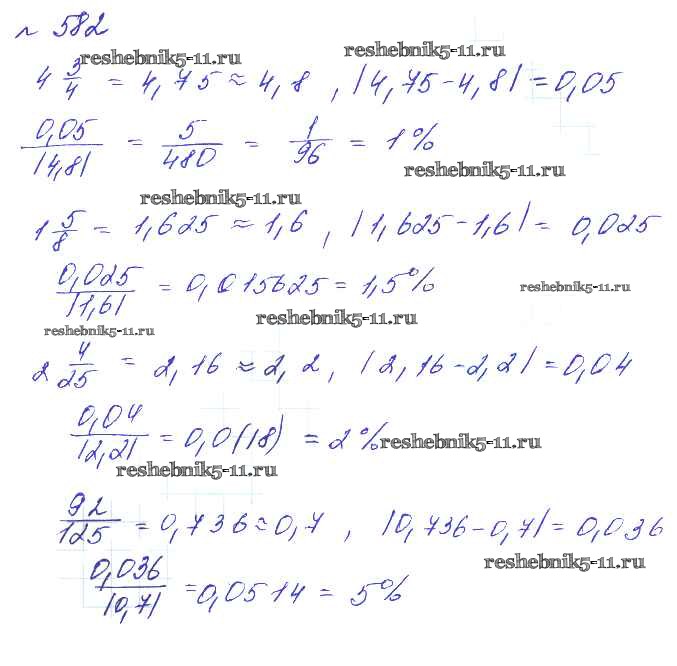 № 582
reshebnik5-11.ru reshebnik5-11.ru
4 3/4 = 4,75 ≈ 4,8 , |4,75 - 4,8| = 0,05
0,05/|4,8| = 5/480 = 1/96 = 1%
reshebnik5-11.ru
reshebnik5-11.ru
1 5/8 = 1,625 ≈ 1,6 , |1,625 - 1,6| = 0,025
0,025/|1,6| = 0,015625 = 1,5%
reshebnik5-11.ru
reshebnik5-11.ru
reshebnik5-11.ru
2 4/25 = 2,16 ≈ 2,2 , |2,16 - 2,2| = 0,04
0,04/|2,2| = 0,0(18) = 2% reshebnik5-11.ru
reshebnik5-11.ru
92/125 = 0,736 ≈ 0,7 , |0,736 - 0,7| = 0,036
reshebnik5-11.ru
0,036/|0,7| = 0,0514 = 5%